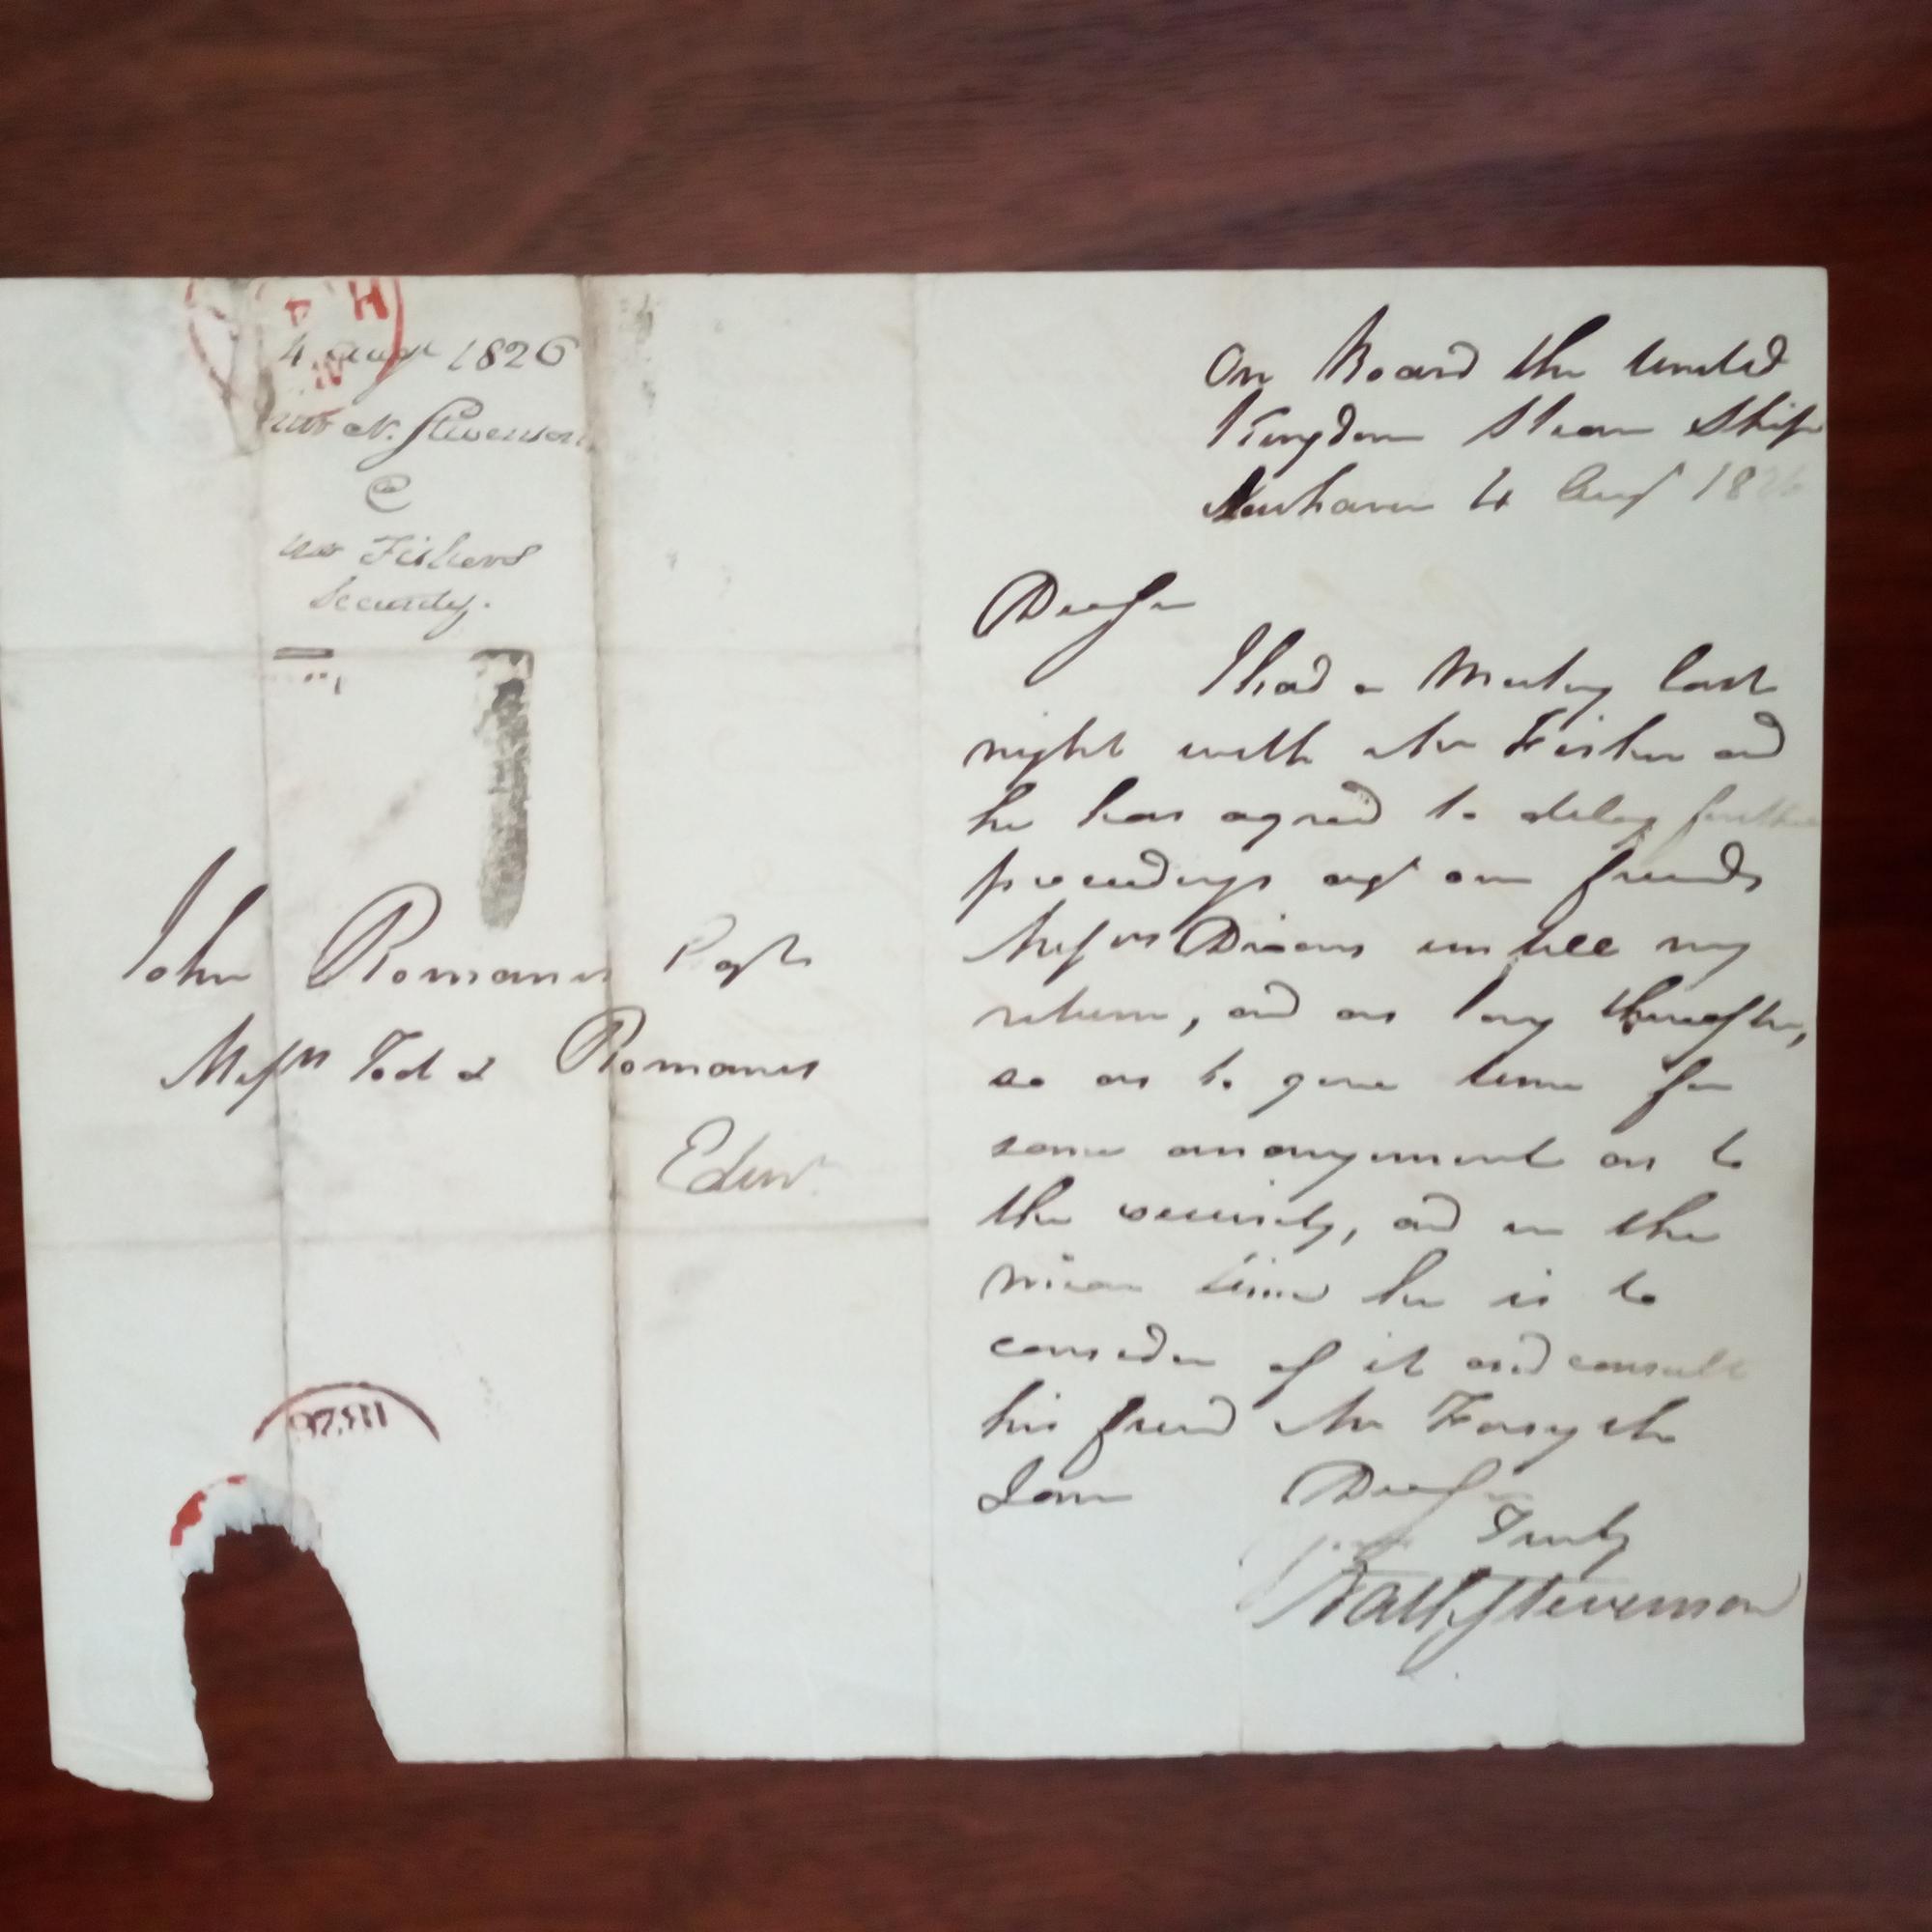 4 Augt 1826
Mr N. Stevenson
@
Mr Fishers
Security.
John Romanes Esqr
Messrs Tod & Romanes
Edinr
On Board the United
Kingdom Steam Ship
Newhaven 4 Augt 1826
Dear Sir
I had a Meeting last
night with Mr Fisher and
he has agreed to delay further
proceedings agt our friends
Messrs Dixons untill my
return, and as long thereafter,
so as to give time for
some arrangement as to
the security, and in the
mean time he is to
consider of it and consult
his friend Mr Forsyth
I am Dear Sir
Truly
Nath Stevenson